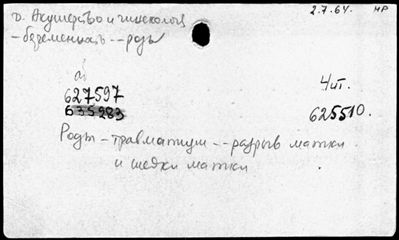 D. Акушерство и гинекология 2.7.64. НР
- беременность -- роды
аб Чит.
627597
635283 625510.
Роды - травматизм -- разрыв матки
и шейки матки